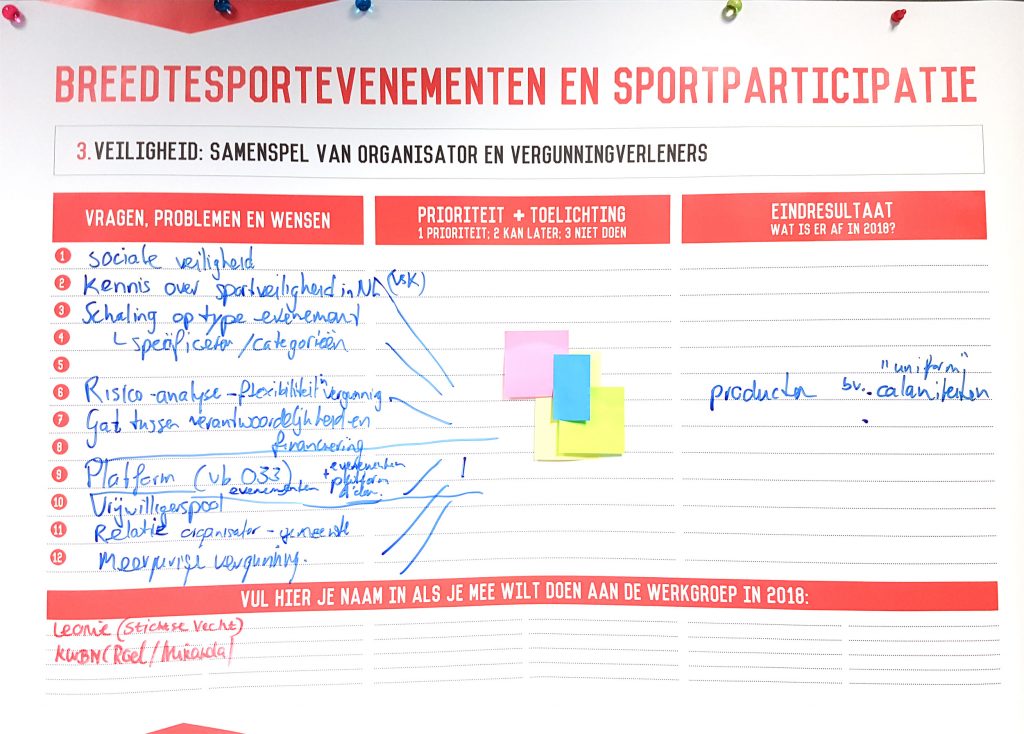 BREEDTESPORTEVENEMENTEN EN SPORTPARTICIPATIE
3. VEILIGHEID: SAMENSPEL VAN ORGANISATOR EN VERGUNNINGVERLENERS
VRAGEN, PROBLEMEN EN WENSEN
PRIORITEIT + TOELICHTING
1 PRIORITEIT; 2 KAN LATER; 3 NIET DOEN
EINDRESULTAAT
WAT IS ER AF IN 2018?
1 sociale veiligheid
2 Kennis over sportveiligheid in NL (VSK)
3 Schaling op type evenement
4 specificeren /categorieën
5
6 Risico-analyse - flexibiliteit in vergunning
7 Gat tussen verantwoordelijkheid en
8 financiering
9 Platform (vb 033) + evenementen platform
10 Vrijwilligerspool evenementen
11 Relatie organisator - gemeente
12 Meerjarige vergunning.
1
"uniform"
producten bv.. calamiteiten
VUL HIER JE NAAM IN ALS JE MEE WILT DOEN AAN DE WERKGROEP IN 2018:
Leonie (Stichtse Vecht)
KWBN (Roel / Miranda)